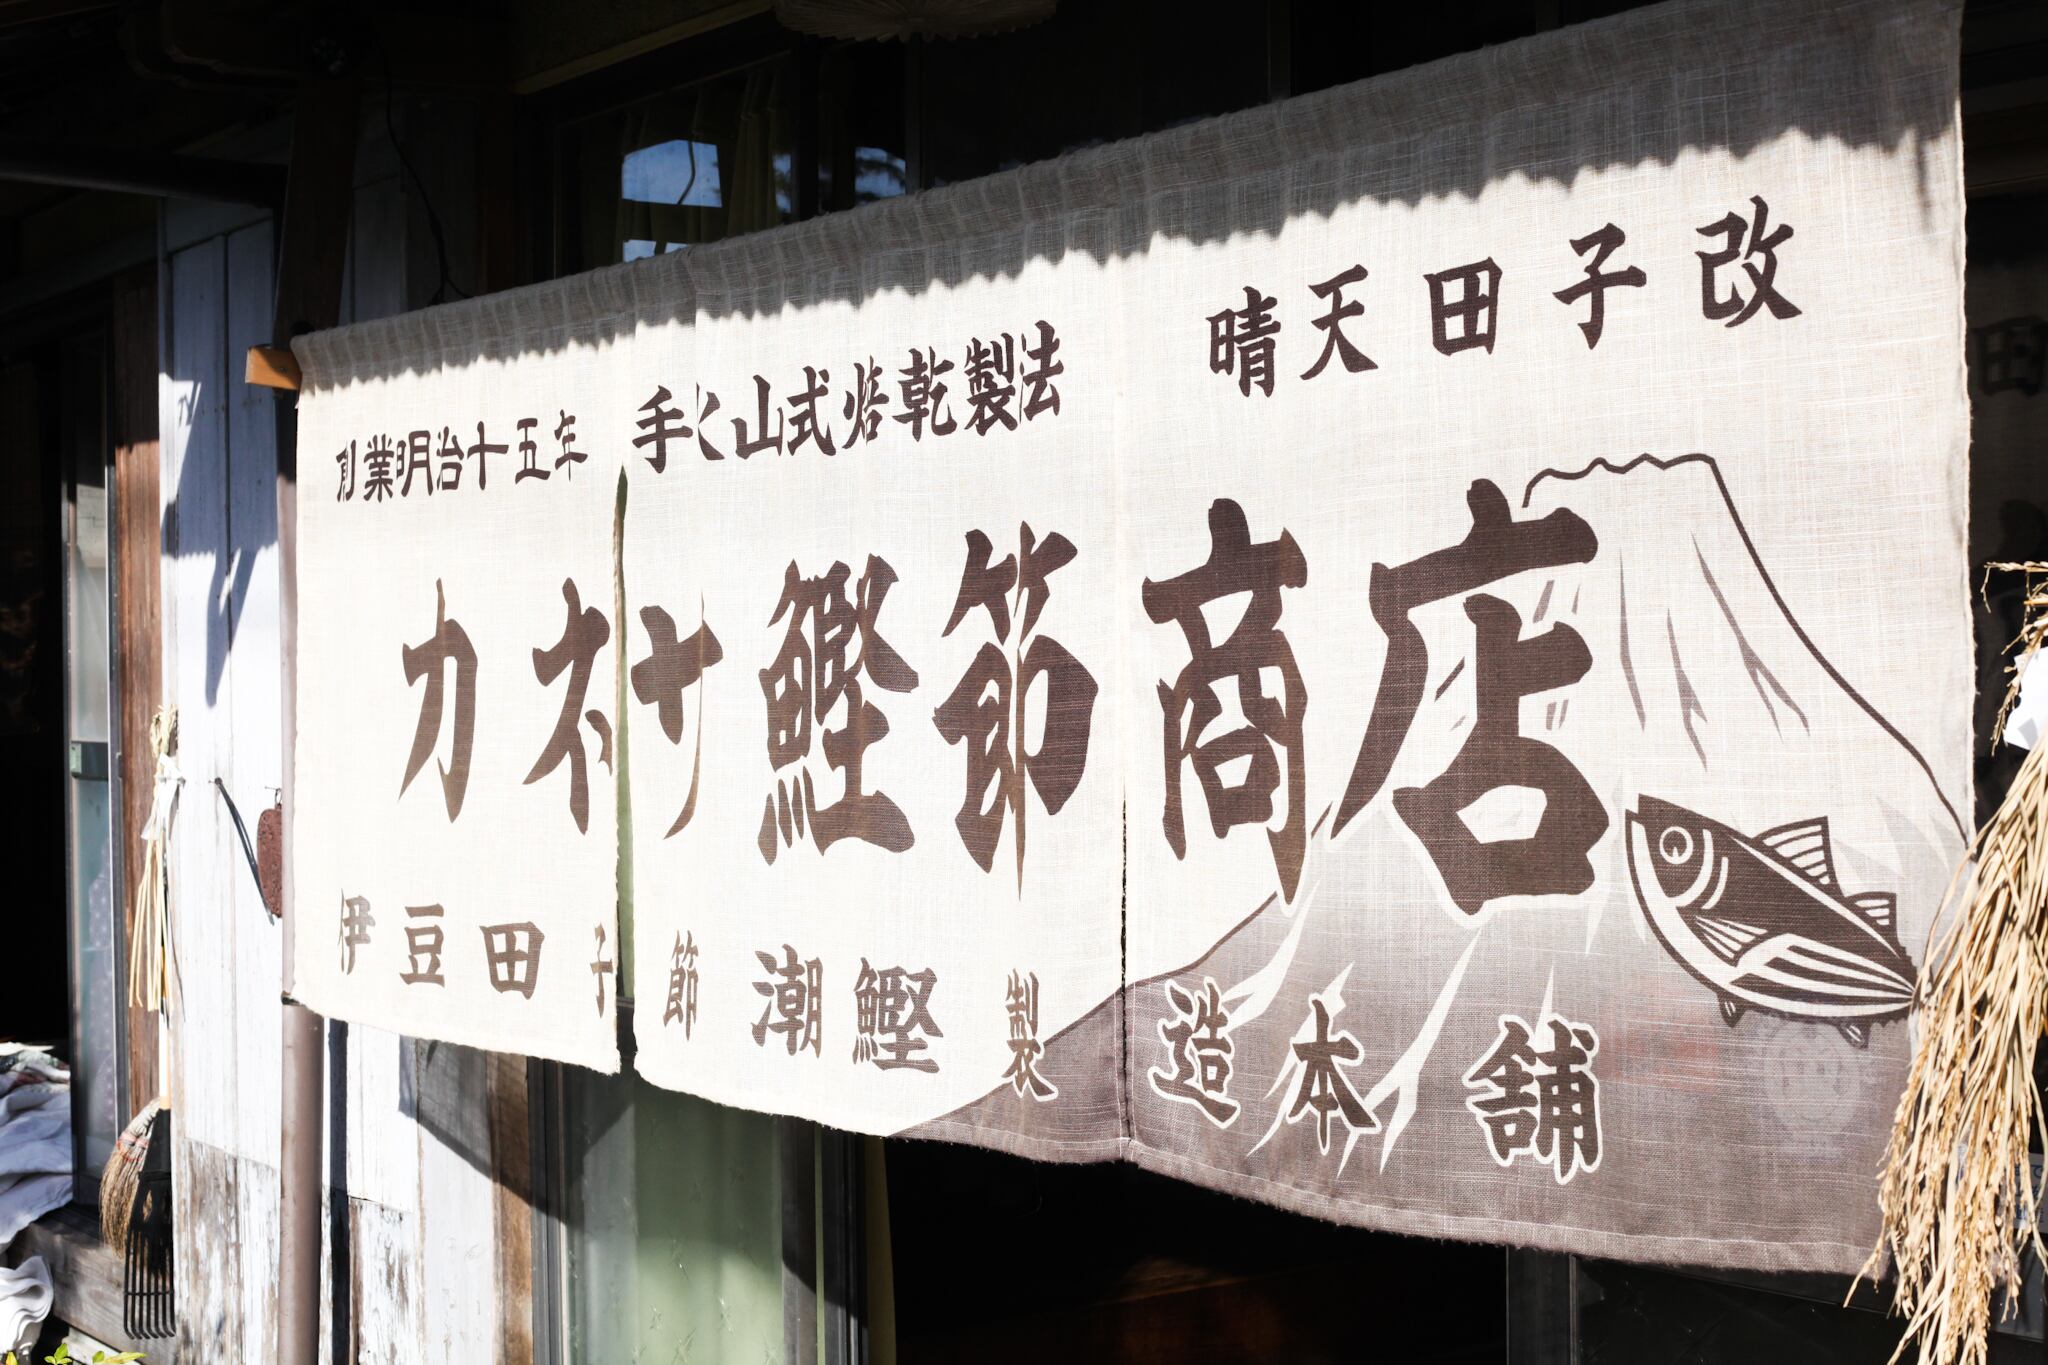 創業明治十五年 手火山式焙乾製法
晴天田子改
カネサ鰹節商店
伊豆田子節 潮鰹 製造本舗